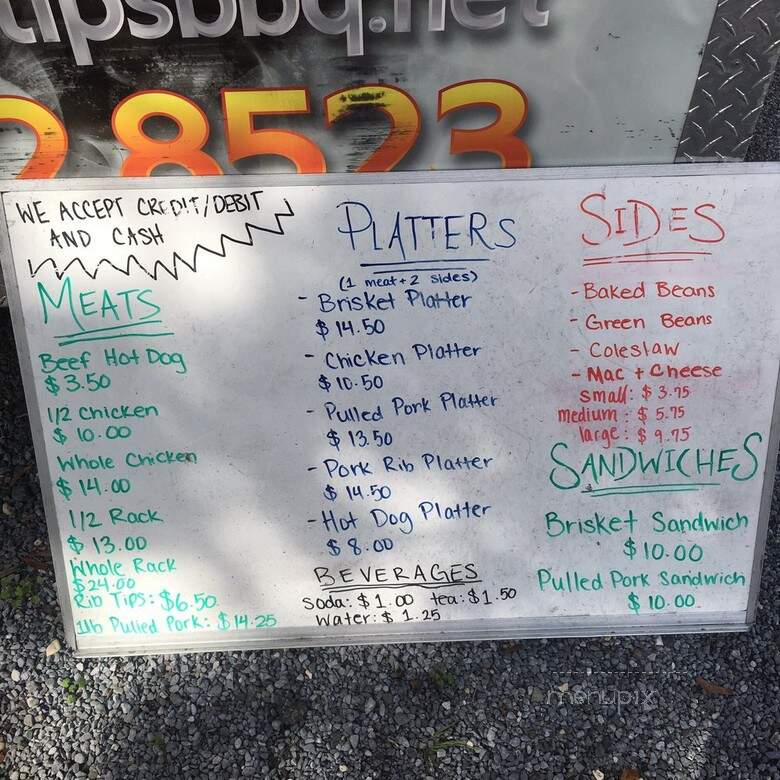 tipsbbq.net
2 8523
WE ACCEPT CREDIT/DEBIT
AND CASH
MEATS
Beef Hot Dog
$3.50
1/2 Chicken
$10.00
Whole Chicken
$14.00
1/2 Rack
$13.00
Whole Rack
$24.00
Rib Tips: $6.50
1lb Pulled Pork: $14.25
PLATTERS
(1 meat + 2 sides)
- Brisket Platter
$14.50
- Chicken Platter
$10.50
- Pulled Pork Platter
$13.50
- Pork Rib Platter
$14.50
- Hot Dog Platter
$8.00
BEVERAGES
Soda: $1.00 tea: $1.50
Water: $1.25
SIDES
- Baked Beans
- Green Beans
- Coleslaw
- Mac + Cheese
small: $3.75
medium: $5.75
large: $9.75
SANDWICHES
Brisket Sandwich
$10.00
Pulled Pork Sandwich
$10.00
menupix